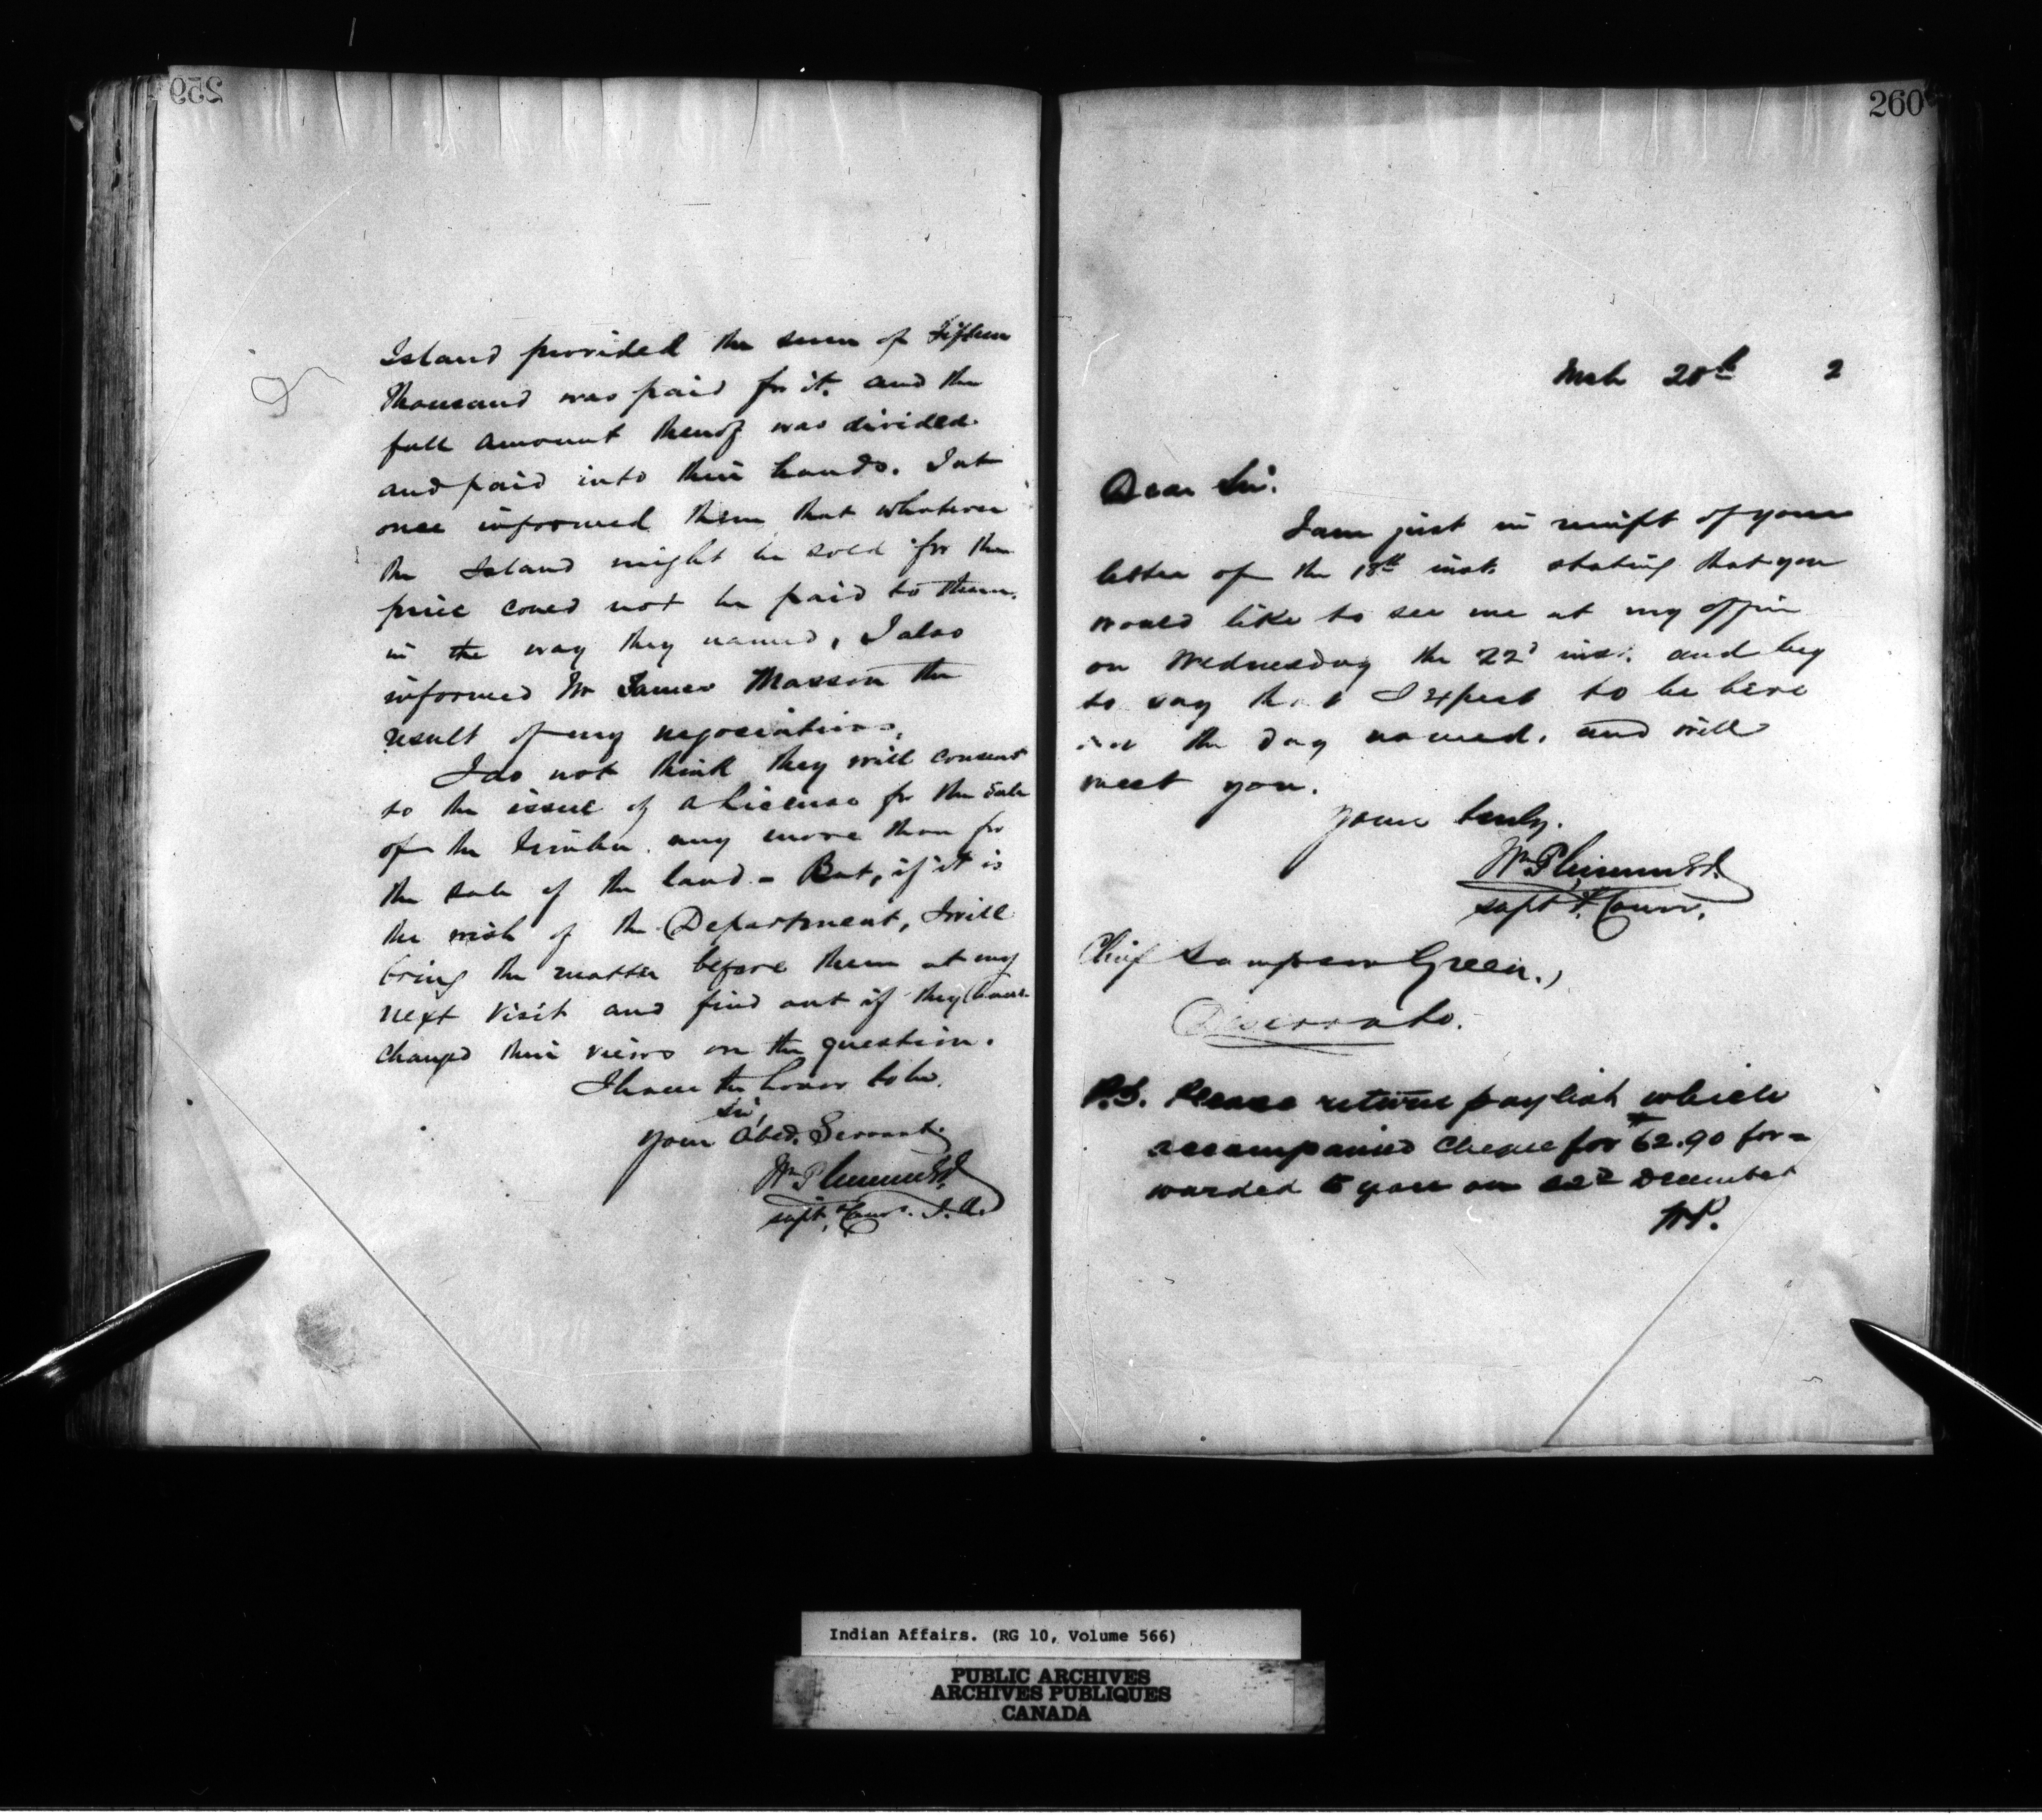 259
Island provided the sum of Fifteen
Thousand was paid for it. and the
full amount thereof was divided
and paid into their hands. I at
once informed them that whatever
the Island might be sold for the
price could not be paid to them.
in the way they named, I also
informed Mr James Masson the
result of my negociations,
I do not think they will consent
to the issue of a License for the sale
of the Timber any more than for
the sale of the land - But, if it is
the wish of the Department, I will
bring the matter before them at my
next visit and find out if they have
changed their views on the question.
I have the honor to be.
Sir,
Your Obed. Servant.
Wm Plummer
Supt. & Comr. I.A.
260
Mch 20th 2
Dear Sir.
I am just in receipt of your
letter of the 18th inst. stating that you
would like to see me at my office
on Wednesday the 22d inst. and beg
to say that I expect to be here
on the day named. and will
meet you.
Yours truly.
Wm Plummer
Supt & Comr.
Chief Sampson Green.,
Deseronto.
P.S. Please return paylist which
accompanied Cheque for $62.90 for=
warded to you on 22d December
WP.
Indian Affairs. (RG 10, Volume 566)
PUBLIC ARCHIVES
ARCHIVES PUBLIQUES
CANADA